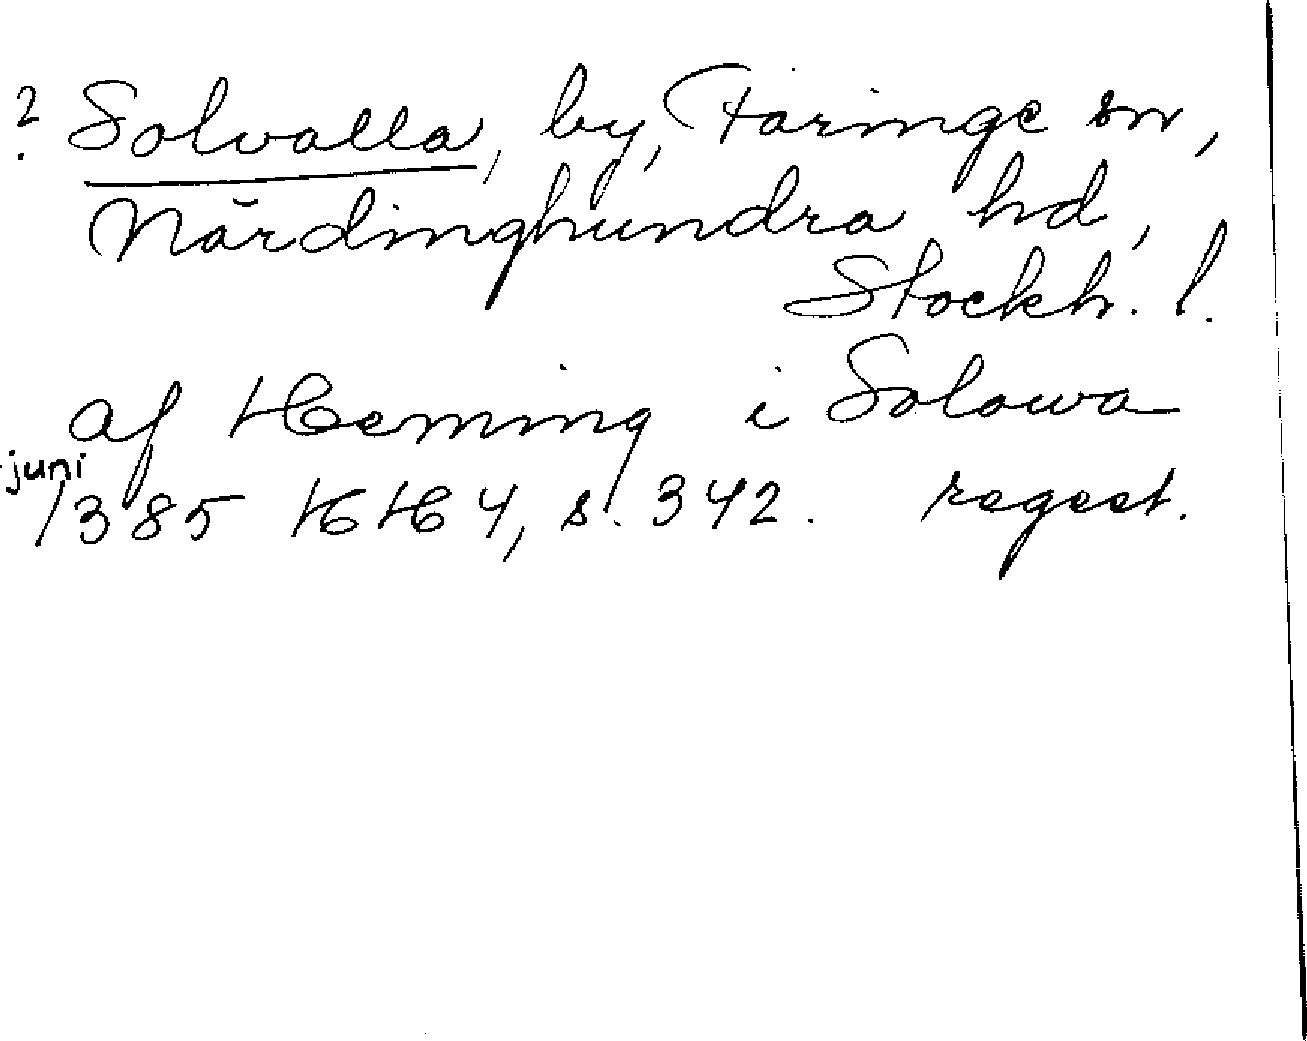 ? Solvalla, by, Faringe sn,
Närdinghundra hd,
Stockh. l.
af Heming i Solawa
juni
1385 KHH 4, s. 342. regest.